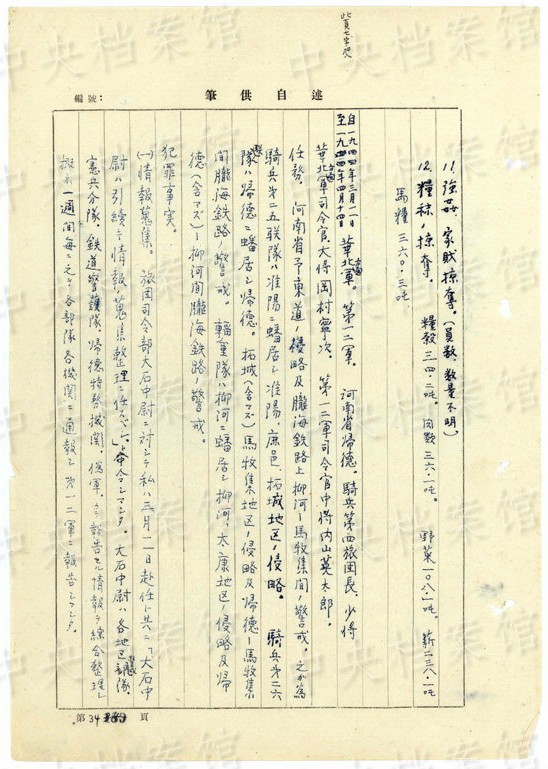 此頁七字改
筆供述自
編號:
11. 強姦、家財掠奪。(員数、数量不明)
12. 糧秣ノ掠奪、 糧穀三四.二吨。 肉類三六.一吨。 野菜一〇八.一吨。 薪二三八.一吨
馬糧三六〇.三吨
自一九四四年三月一一日
至一九四四年四月十四日 華北方面軍。 第一二軍。 河南省帰德。騎兵第四旅団長、少将
華北方面軍司令官、大将岡村寧次。 第一二軍司令官中将内山英太郎。
任務。河南省予東道ノ侵略及隴海鉄路上柳河ー馬牧集間ノ警戒。之ガ為
騎兵第二五联隊ハ淮陽ニ蟠居シ淮陽、鹿邑、柘城地区ノ侵略。 騎兵第二六
联隊ハ帰德ニ蟠居シ帰德。柘城(含マズ)馬牧集地区ノ侵略及帰德ー馬牧集
間隴海鉄路ノ警戒。 輜重隊ハ柳河ニ蟠居シ柳河、太康地区ノ侵略及帰
德(含マズ)ー柳河間隴海鉄路ノ警戒。
犯罪事実。
(一)情報蒐集。 旅団司令部大石中尉ニ対シテ私ハ三月一一日赴任ト共ニ「大石中
尉ハ引続キ情報ノ蒐集整理ニ任ズベシ」ト命令シマシタ。 大石中尉ハ各地区部隊、
憲兵分隊、鉄道警護隊、帰德特務機関、偽軍、カラ報告スル情報ヲ綜合整理シ
一週間毎ニ之ヲ各部隊各機関ニ通報シ第一二軍ニ報告シマシタ。
第 34 頁
中央档案馆